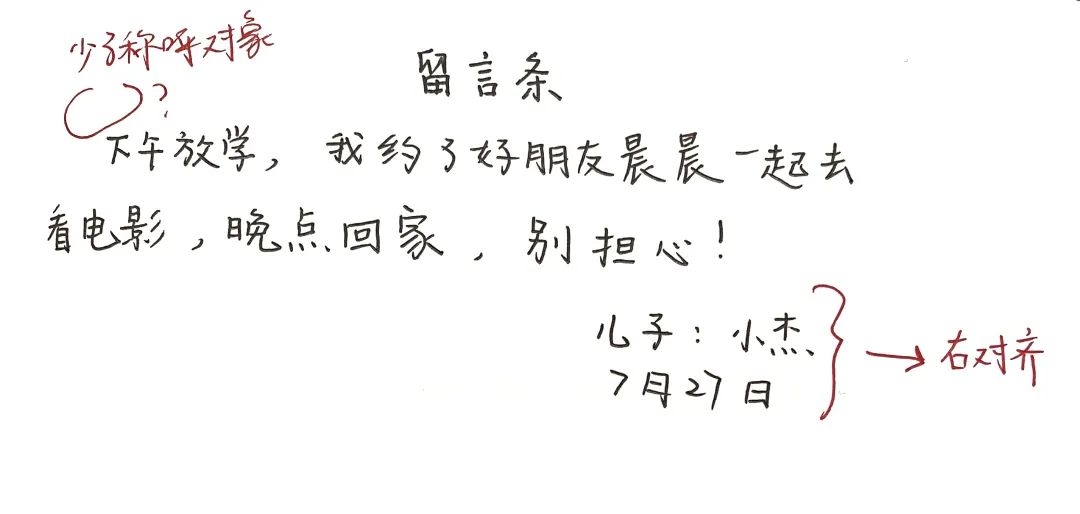 少了称呼对象
?
留言条
下午放学，我约了好朋友晨晨一起去
看电影，晚点回家，别担心！
儿子：小杰
7月27日
右对齐